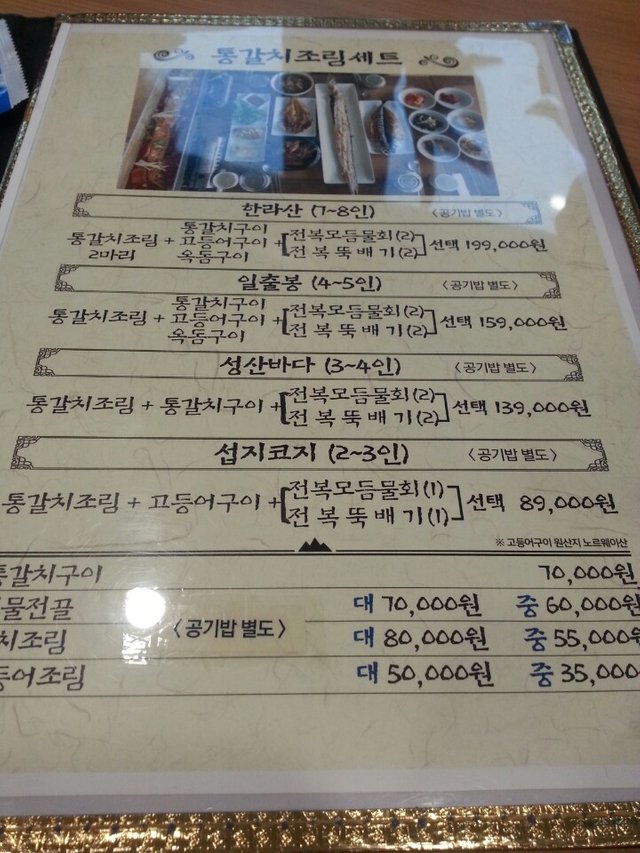 통갈치조림세트
한라산 (7~8인) 〈공기밥 별도〉
통갈치구이
통갈치조림 + 고등어구이 + [전복모듬물회(2)
2마리 옥돔구이 전복뚝배기(2)] 선택 199,000원
일출봉 (4~5인) 〈공기밥 별도〉
통갈치구이
통갈치조림 + 고등어구이 + [전복모듬물회(2)
옥돔구이 전복뚝배기(2)] 선택 159,000원
성산바다 (3~4인) 〈공기밥 별도〉
통갈치조림 + 통갈치구이 + [전복모듬물회(2)
전복뚝배기(2)] 선택 139,000원
섭지코지 (2~3인) 〈공기밥 별도〉
통갈치조림 + 고등어구이 + [전복모듬물회(1)
전복뚝배기(1)] 선택 89,000원
※ 고등어구이 원산지 노르웨이산
통갈치구이 70,000원
물전골 대 70,000원 중 60,000원
〈공기밥 별도〉
치조림 대 80,000원 중 55,000원
등어조림 대 50,000원 중 35,000